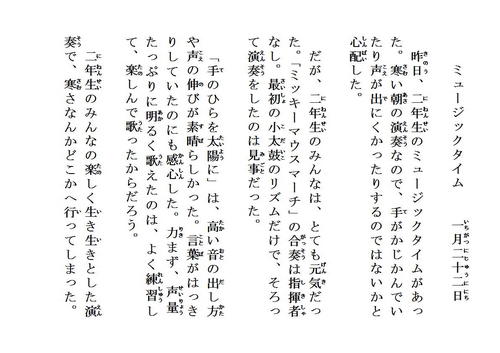 ミュージックタイム　一月二十二日
昨日、二年生のミュージックタイムがあっ
た。寒い朝の演奏なので、手がかじかんでい
たり声が出にくかったりするのではないかと
心配した。
だが、二年生のみんなは、とても元気だっ
た。「ミッキーマウスマーチ」の合奏は指揮者
なし。最初の小太鼓のリズムだけで、そろっ
て演奏をしたのは見事だった。
「手のひらを太陽に」は、高い音の出し方
や声の伸びが素晴らしかった。言葉がはっき
りしていたのにも感心した。力まず、声量
たっぷりに明るく歌えたのは、よく練習し
て、楽しんで歌ったからだろう。
二年生のみんなの楽しく生き生きとした演
奏で、寒さなんかどこかへ行ってしまった。